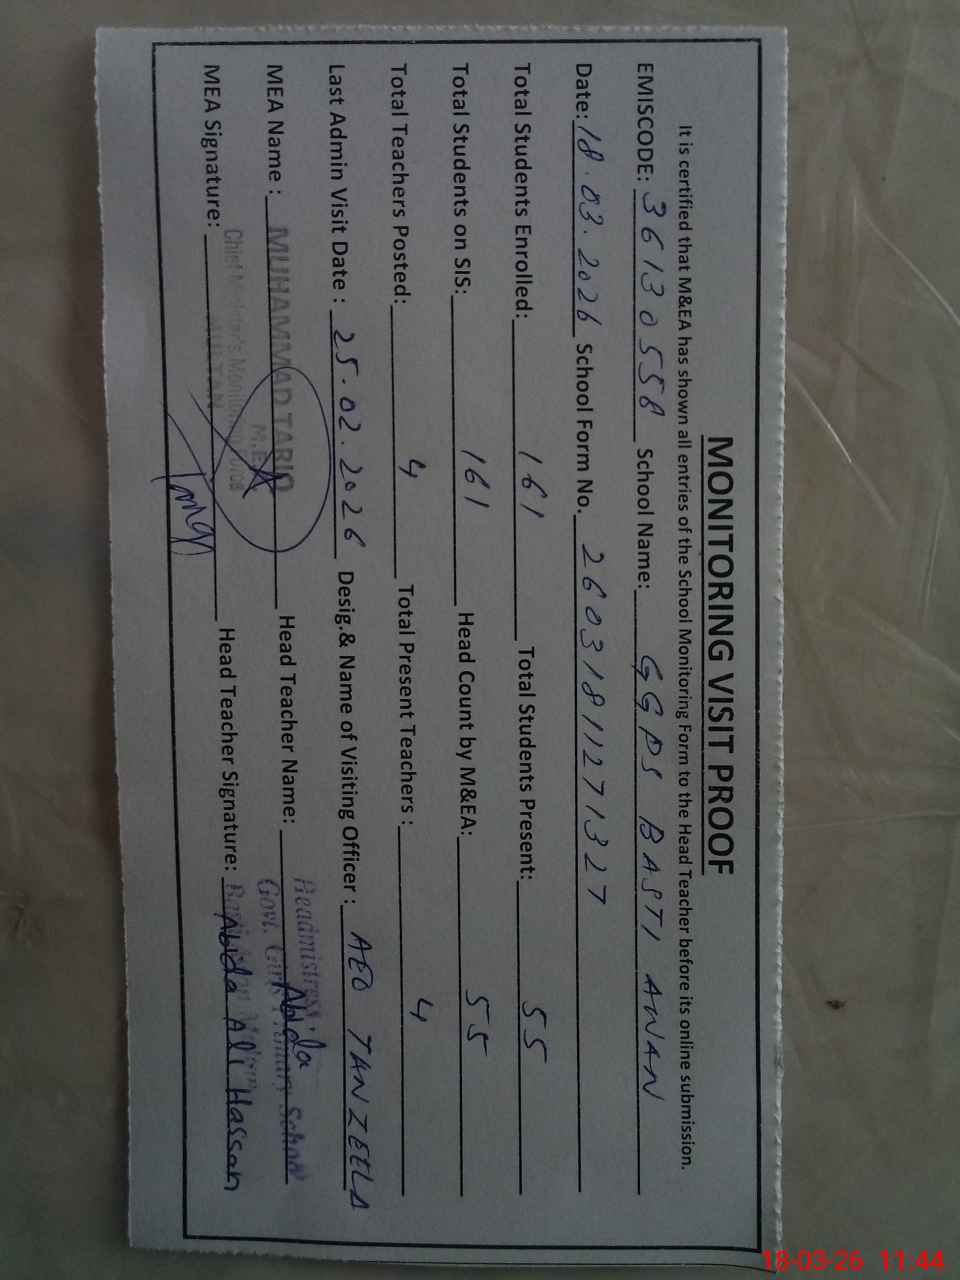 MONITORING VISIT PROOF
It is certified that M&EA has shown all entries of the School Monitoring Form to the Head Teacher before its online submission.
EMISCODE: 36130558 School Name: GGPS BASTI AWAN
Date: 18.03.2026 School Form No. 2603181127 1327
Total Students Enrolled: 161 Total Students Present: 55
Total Students on SIS: 161 Head Count by M&EA: 55
Total Teachers Posted: 4 Total Present Teachers : 4
Last Admin Visit Date : 25.02.2026 Desig.& Name of Visiting Officer : AEO TANZEELA
MEA Name : MUHAMMAD TARIQ Head Teacher Name: Abida
Headmistress
M.E.A
Govt. Girls Primary School
Chief Minister's Monitoring Force
MEA Signature: MULTAN Head Teacher Signature: Abida Ali Hassan
18-03-26 11:44